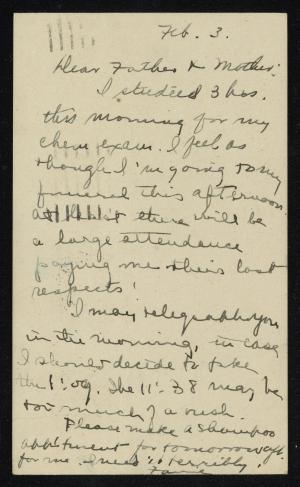 Feb. 3.
Dear Father & Mother:
I studied 3 hrs.
this morning for my
chem exam. I feel as
though I'm going to my
funeral this afternoon.
at that there will be
a large attendance
paying me their last
respects!
I may telegraph you
in the morning, in case
I should decide to take
the 1:09. The 11:38 may be
too much of a rush.
Please make a shampoo
appointment for tomorrow aft.
for me. I need it terribly.